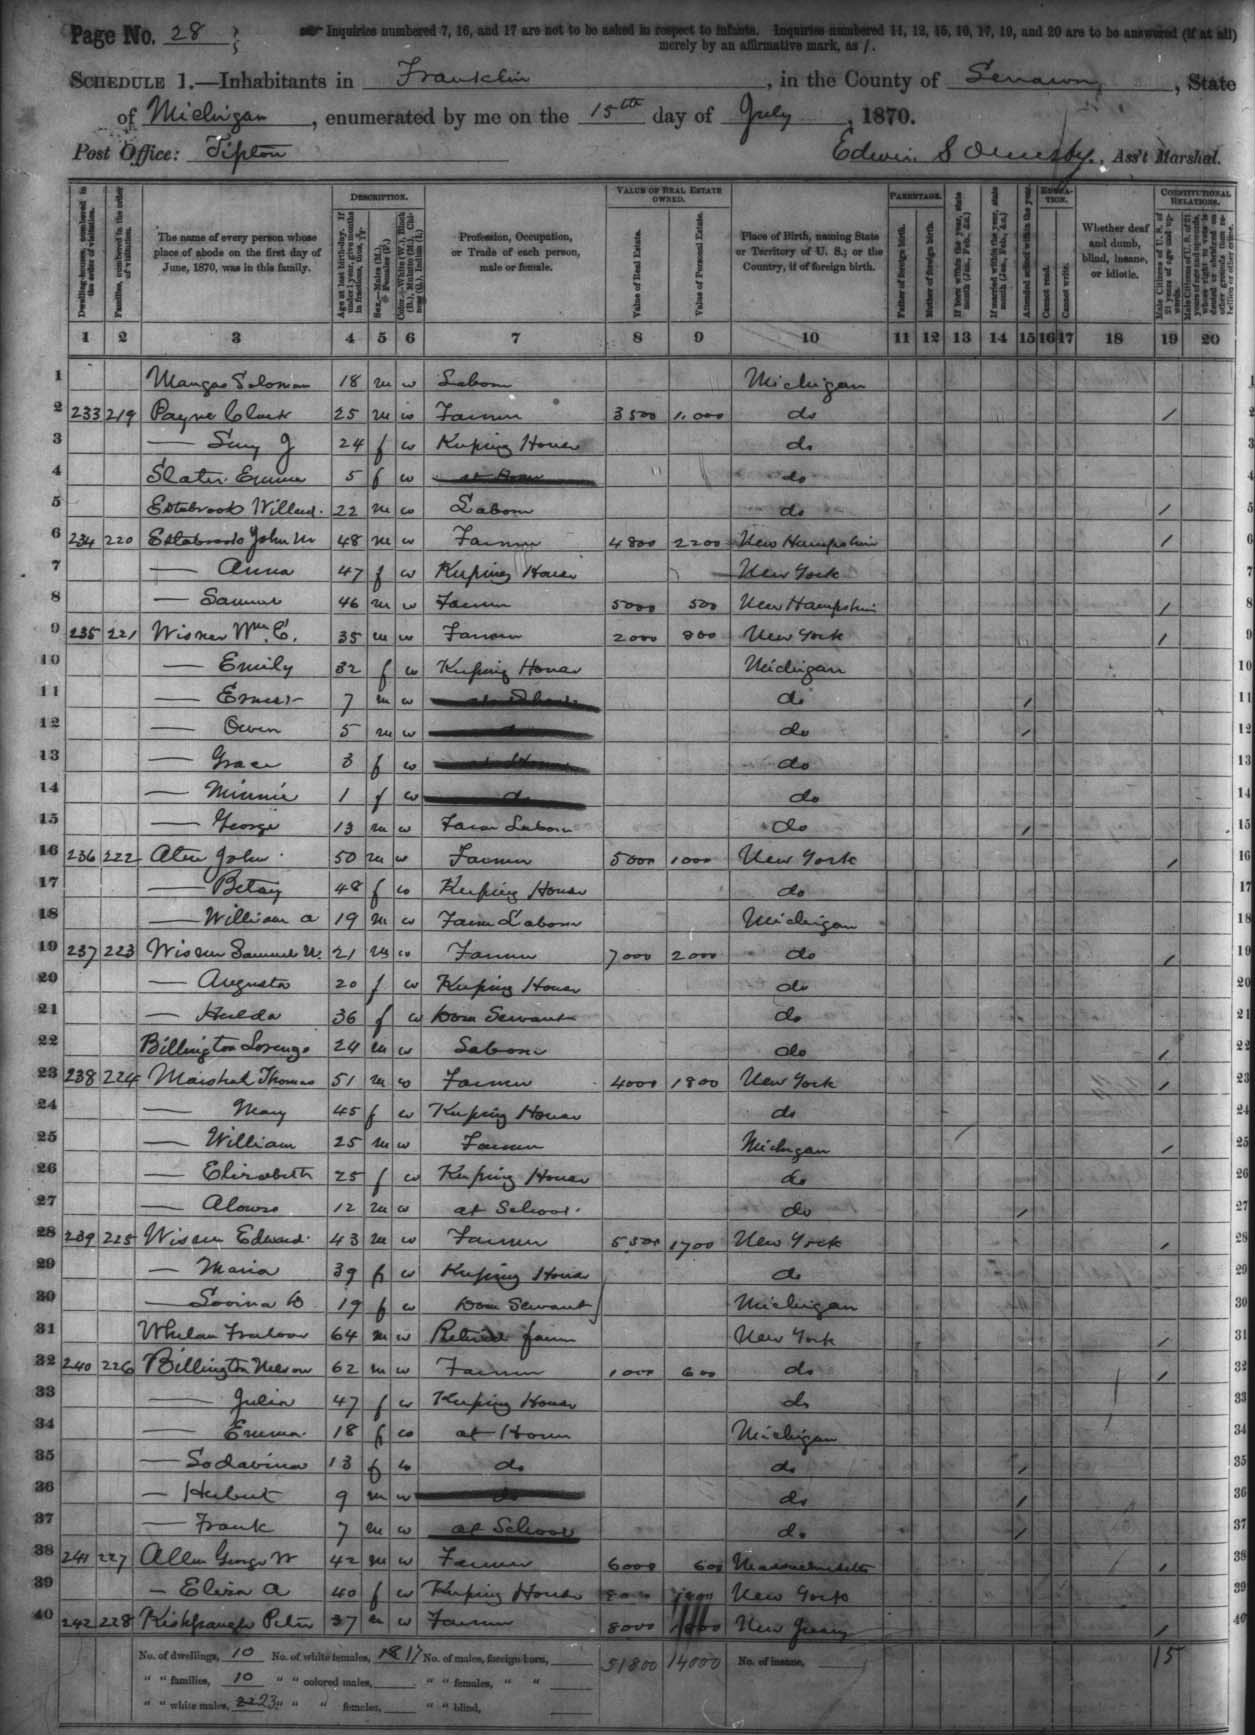 Page No. 28
Inquiries numbered 7, 16, and 17 are not to be asked in respect to infants. Inquiries numbered 11, 12, 15, 16, 17, 19, and 20 are to be answered (if at all)
merely by an affirmative mark, as /.
SCHEDULE 1.—Inhabitants in Franklin, in the County of Lenawee, State
of Michigan, enumerated by me on the 15th day of July, 1870.
Post Office: Tipton Edwin S Ormsby, Ass't Marshal.
DESCRIPTION. VALUE OF REAL ESTATE OWNED. PARENTAGE. EDUCATION. CONSTITUTIONAL RELATIONS.
Dwelling-houses, numbered in the order of visitation. Families, numbered in the order of visitation. The name of every person whose place of abode on the first day of June, 1870, was in this family. Profession, Occupation, or Trade of each person, male or female. Value of Real Estate. Value of Personal Estate. Place of Birth, naming State or Territory of U. S.; or the Country, if of foreign birth. Father of foreign birth. Mother of foreign birth. Attended school within the year. Cannot read. Cannot write. Whether deaf and dumb, blind, insane, or idiotic.
1 2 3 4 5 6 7 8 9 10 11 12 13 14 15 16 17 18 19 20
1 Mangas Soloman 18 m w Labor Michigan 1
2 233 219 Payne Clark 25 m w Farmer 3500 1,000 do / 2
3 — Lucy J 24 f w Keeping House do 3
4 Slater Emma 5 f w at Home do 4
5 Estabrook Willard 22 m w Labor do / 5
6 234 220 Estabrook John M 48 m w Farmer 4800 2200 New Hampshire / 6
7 — Anna 47 f w Keeping House New York 7
8 — Samuel 46 m w Farmer 5000 500 New Hampshire / 8
9 235 221 Wisner Wm C. 35 m w Farmer 2000 800 New York / 9
10 — Emily 32 f w Keeping House Michigan 10
11 — Ernest 7 m w do / 11
12 — Owen 5 m w do / 12
13 — Grace 3 f w at Home do 13
14 — Minnie 1 f w do do 14
15 — George 13 m w Farm Labor do / 15
16 236 222 Aten John 50 m w Farmer 5000 1000 New York / 16
17 — Betsy 48 f w Keeping House do 17
18 — William A 19 m w Farm Labor Michigan 18
19 237 223 Wisner Samuel N. 21 m w Farmer 7000 2000 do / 19
20 — Augusta 20 f w Keeping House do 20
21 — Hulda 36 f w Dom Servant do 21
22 Billington Lorenzo 24 m w Labor do / 22
23 238 224 Marshal Thomas 51 m w Farmer 4000 1800 New York / 23
24 — Mary 45 f w Keeping House do 24
25 — William 25 m w Farmer Michigan / 25
26 — Elizabeth 25 f w Keeping House do 26
27 — Alonzo 12 m w at School do / 27
28 239 225 Wisner Edward 43 m w Farmer 5500 1700 New York / 28
29 — Maria 39 f w Keeping House do 29
30 — Lovina D 19 f w Dom Servant Michigan 30
31 Whelan 64 m w Retired farmer New York / 31
32 240 226 Billington Nelson 62 m w Farmer 1000 600 do / 32
33 — Julia 47 f w Keeping House do 33
34 — Emma 18 f w at Home Michigan 34
35 — Sodavina 13 f w do do / 35
36 — Herbert 9 m w do do / 36
37 — Frank 7 m w at School do / 37
38 241 227 Allen George W 42 m w Farmer 6000 600 Massachusetts / 38
39 — Eliza A 40 f w Keeping House New York 39
40 242 228 Kishpaugh Peter 37 m w Farmer 8000 New Jersey / 40
No. of dwellings, 10 No. of white females, 18 17 No. of males, foreign born, 51800 14000 No. of insane, 15
" " families, 10 " " colored males, " " females, " "
" " white males, 22 23 " " " females, " " blind,